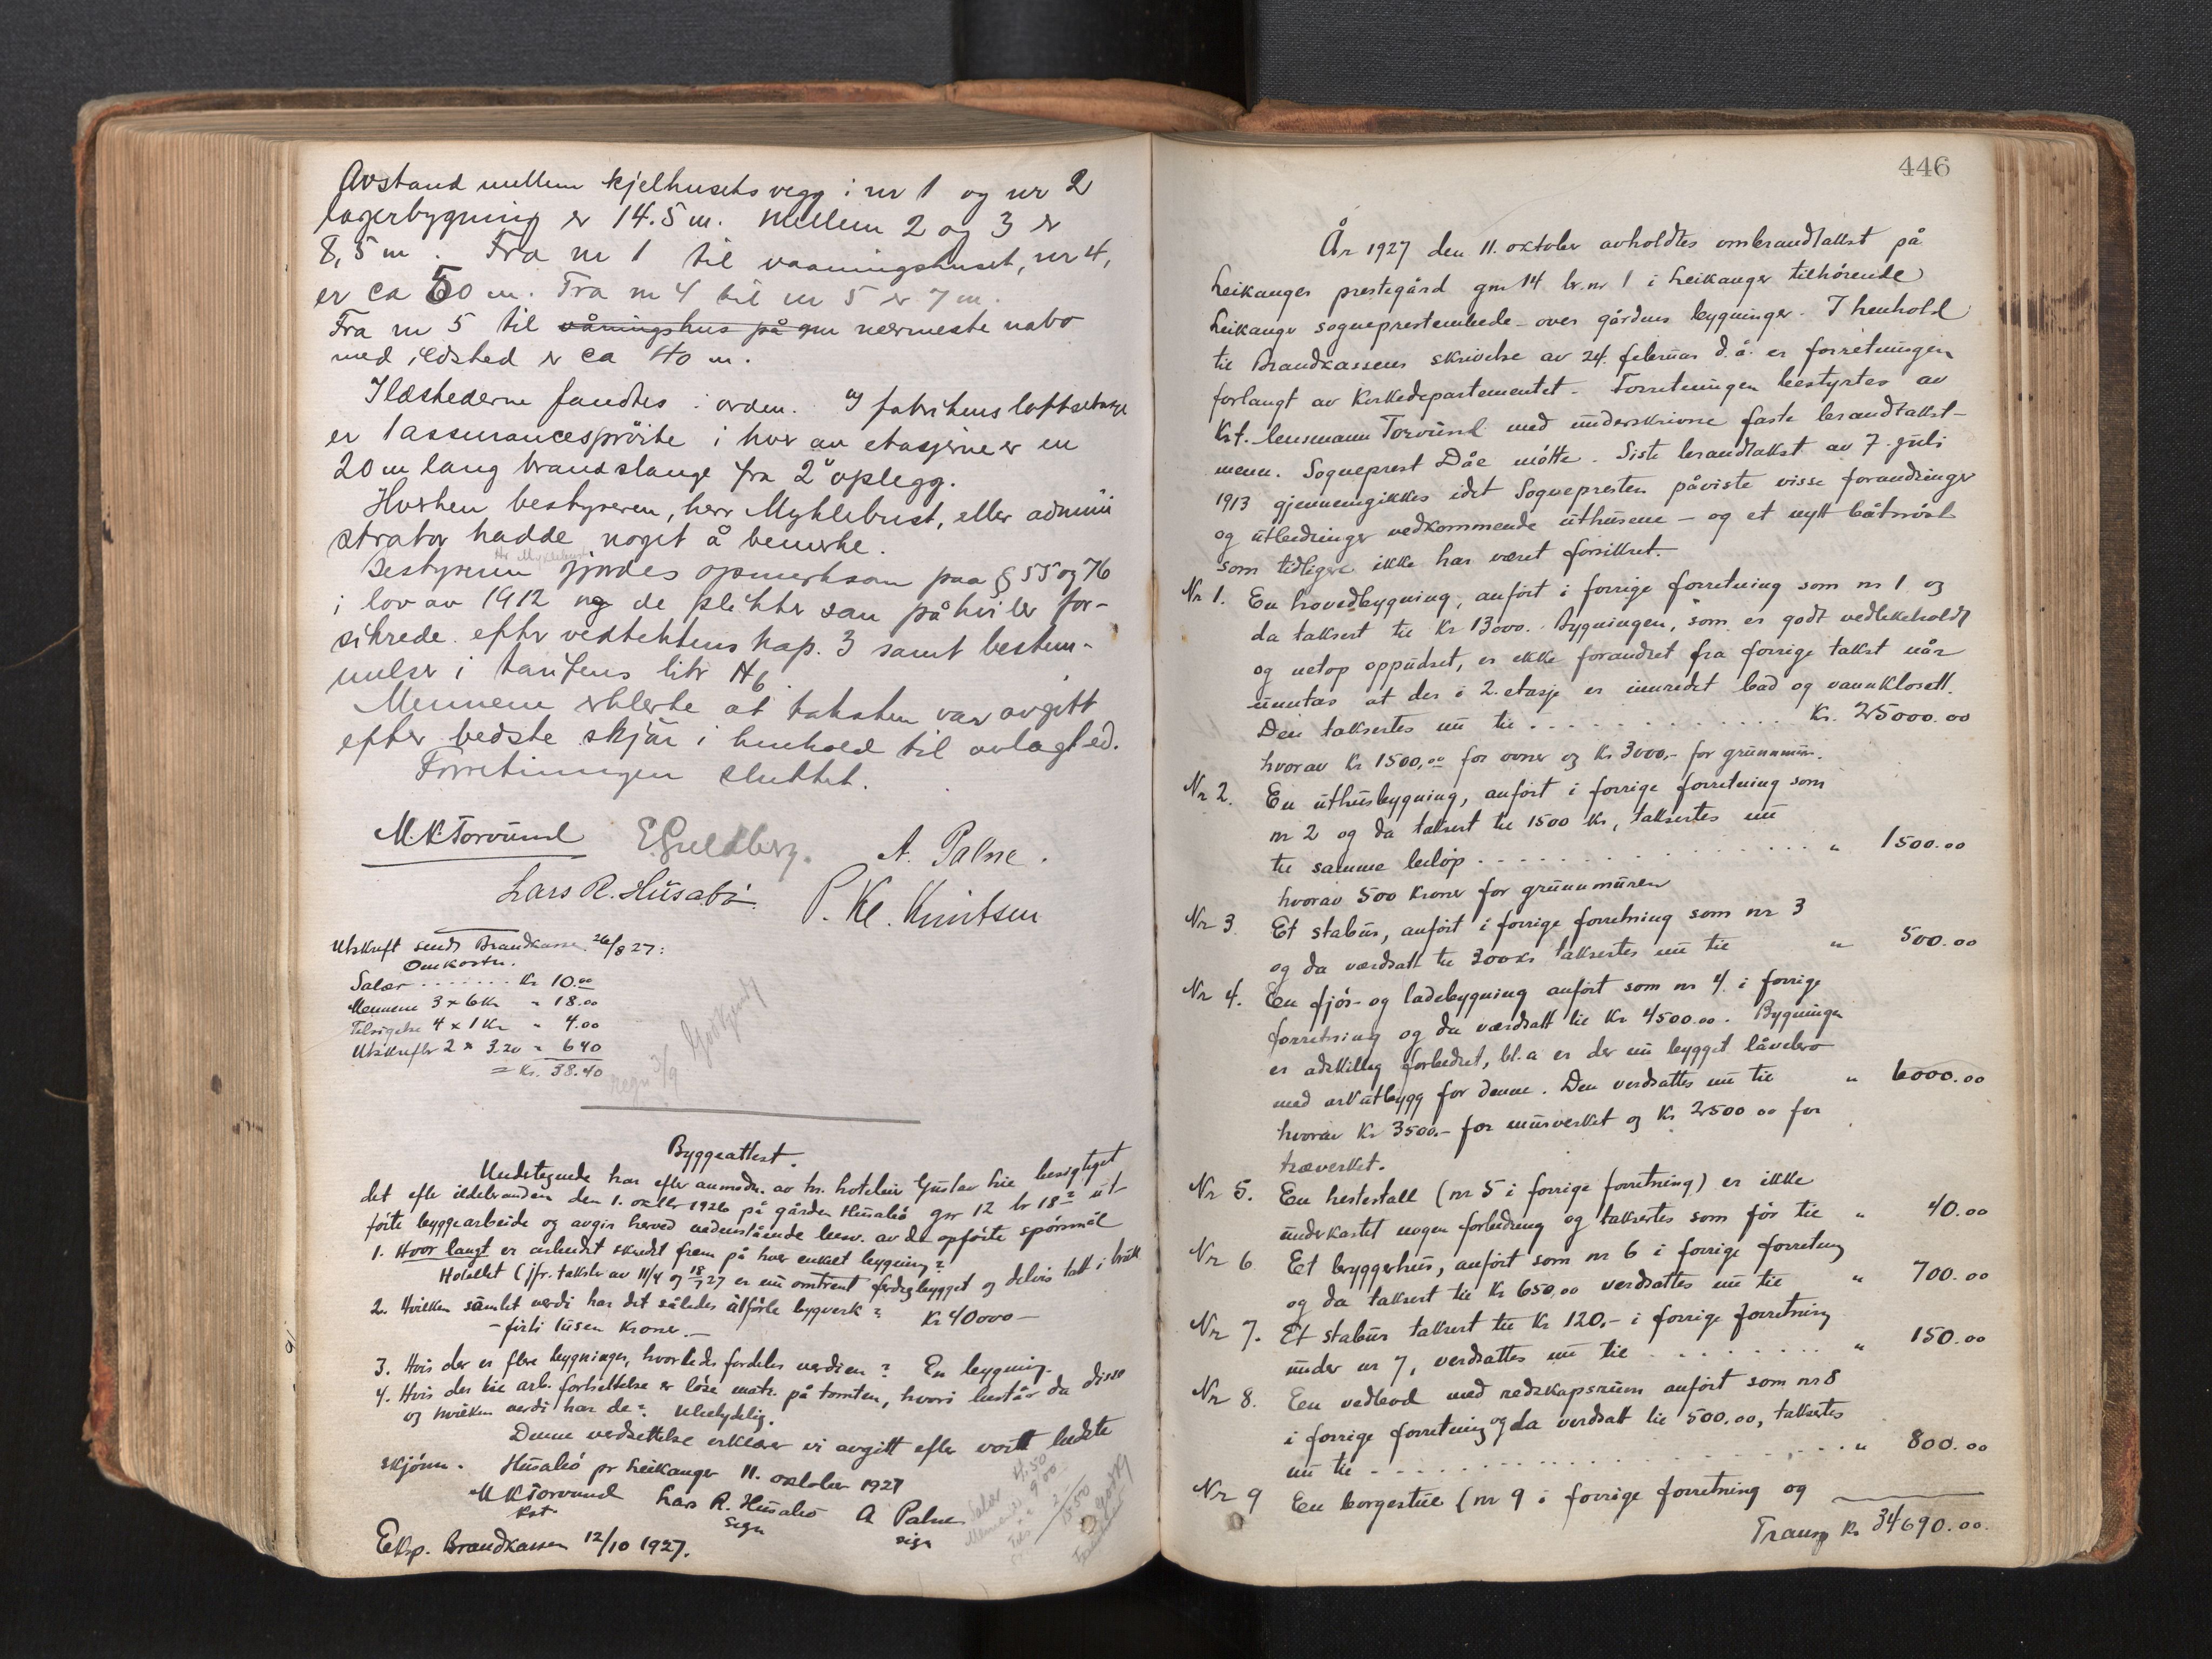 Avstand mellem kjelhusets vegg i nr 1 og nr 2
lagerbygning er 14.5 m. Mellem 2 og 3 er
8,5 m. Fra nr 1 til vaaningshuset, nr 4,
er ca 50 m. Fra nr 4 til nr 5 er 7 m.
Fra nr 5 til våningshus på gnr nærmeste nabo
med ildsted er ca 40 m.
Ildstederne fandtes i orden. I fabrikens loftsetasje
er 1 assurancesprøite i hver av etasjerne er en
20 m lang brandslange fra 2" oplegg.
Hverken bestyreren, herr Myklebust, eller admini
strator hadde noget å bemerke.
Hr Myklebust
Bestyreren gjordes opmerksom paa § 55 og 76
i lov av 1912 og de plikter som påhviler for-
sikrede efter vedtektens kap. 3 samt bestem-
melser i tarifens litr H6.
Mennene erklerte at taksten var avgitt
efter bedste skjøn i henhold til avlagt ed.
Forretningen sluttet.
M.K. Torvund E. Guldberg. A. Palne.
Lars R. Husabø. P. Kl. Knutsen
Utskrift sendt Brandkassen 26/8 27:
Omkostn.
Salær ....... Kr 10.00
Mennene 3 x 6 Kr " 18.00
Tilsigelse 4 x 1 Kr " 4.00
Utskrifter 2 x 3.20 = 6 40
= Kr. 38.40
regn 3/9 Godkjendt
Byggeattest.
Undertegnede har efter anmodn. av hr. hoteleier Gustav Lie besigtiget
det efter ildebranden den 1. oktbr 1926 på gården Husabø gnr 12 br 18² ut
førte byggearbeide og avgir herved nedenstående besv. av de opførte spørsmål
1. Hvor langt er arbeidet skredet frem på hver enkelt bygning?
Hotellet (jfr. takster av 11/4 og 18/7 27 er nu omtrent ferdigbygget og delvis tatt i bruk
2. Hvilken samlet verdi har det således utførte bygverk? Kr 40000 —
- firti tusen kroner. —
3. Hvis der er flere bygninger, hvorledes fordeles verdien? En bygning.
4. Hvis der til arb. fortsettelse er løse matr. på tomten, hvori består da disse
og hvilken verdi har de? Ubetydelig.
Denne verdsettelse erklærer vi avgitt efter vort bedste
skjønn. Husabø pr Leikanger 11. oktober 1927
M K Torvund Lars R. Husabø A Palne
Kst. sign sign
Salær 4.50
Mennene 9.00
15.50
Eksp. Brandkassen 12/10 1927.
446
År 1927 den 11. oktober avholdtes ombrandtakst på
Leikanger prestegård gnr 14 br.nr 1 i Leikanger tilhørende
Leikanger sogneprestembede over gårdens bygninger. I henhold
til Brandkassens skrivelse av 24. februar d.å. er forretningen
forlangt av Kirkedepartementet. Forretningen bestyrtes av
Kst. lensmann Torvund med underskrivne faste brandtakst-
menn. Sogneprest Dåe møtte. Siste brandtakst av 7. juli
1913 gjennemgikkes idet Sognepresten påviste visse forandringer
og utbedringer vedkommende uthusene – og et nytt båtnøst
som tidligere ikke har været forsikret.
Nr 1. En hovedbygning, anført i forrige forretning som nr 1 og
da taksert til Kr 13000. Bygningen, som er godt vedlikeholdt
og netop oppudset, er ikke forandret fra forrige takst når
unntas at der i 2. etasje er innredet bad og vannklosett.
Den taksertes nu til . . . . . . . . . . . Kr. 25000.00
hvorav Kr 1500,00 for ovner og Kr 3000,- for grunnmur.
Nr 2. En uthusbygning, anført i forrige forretning som
nr 2 og da taksert til 1500 Kr, taksertes nu
til samme beløp . . . . . . . . . . . . " 1500.00
hvorav 500 kroner for grunnmuren
Nr 3. Et stabur, anført i forrige forretning som nr 3
og da værdsatt til 300 kr taksertes nu til " 500.00
Nr 4. En fjøs- og ladebygning anført som nr 4 i forrige
forretning og da værdsatt til Kr 4500.00. Bygningen
er adskillig forbedret, bl.a er der nu bygget låvebro
med arkutbygg for denne. Den verdsattes nu til " 6000.00
hvorav Kr 3500.- for murverket og Kr 2500 00 for
træverket.
Nr 5. En hestestall (nr 5 i forrige forretning) er ikke
underkastet nogen forbedring og taksertes som før til " 40.00
Nr 6 Et bryggerhus, anført som nr 6 i forrige forretning
og da taksert til Kr 650,00 verdsattes nu til " 700.00
Nr 7. Et stabur taksert til Kr 120.- i forrige forretning
under nr 7, verdsattes nu til . . . . . . . . " 150.00
Nr 8. En vedbod med redskapsrum anført som nr 8
i forrige forretning og da verdsatt til 500.00, taksertes
nu til . . . . . . . . . . . . . . . . " 800.00
Nr 9 En borgestue (nr 9 i forrige forretning og
Transp Kr 34690.00.